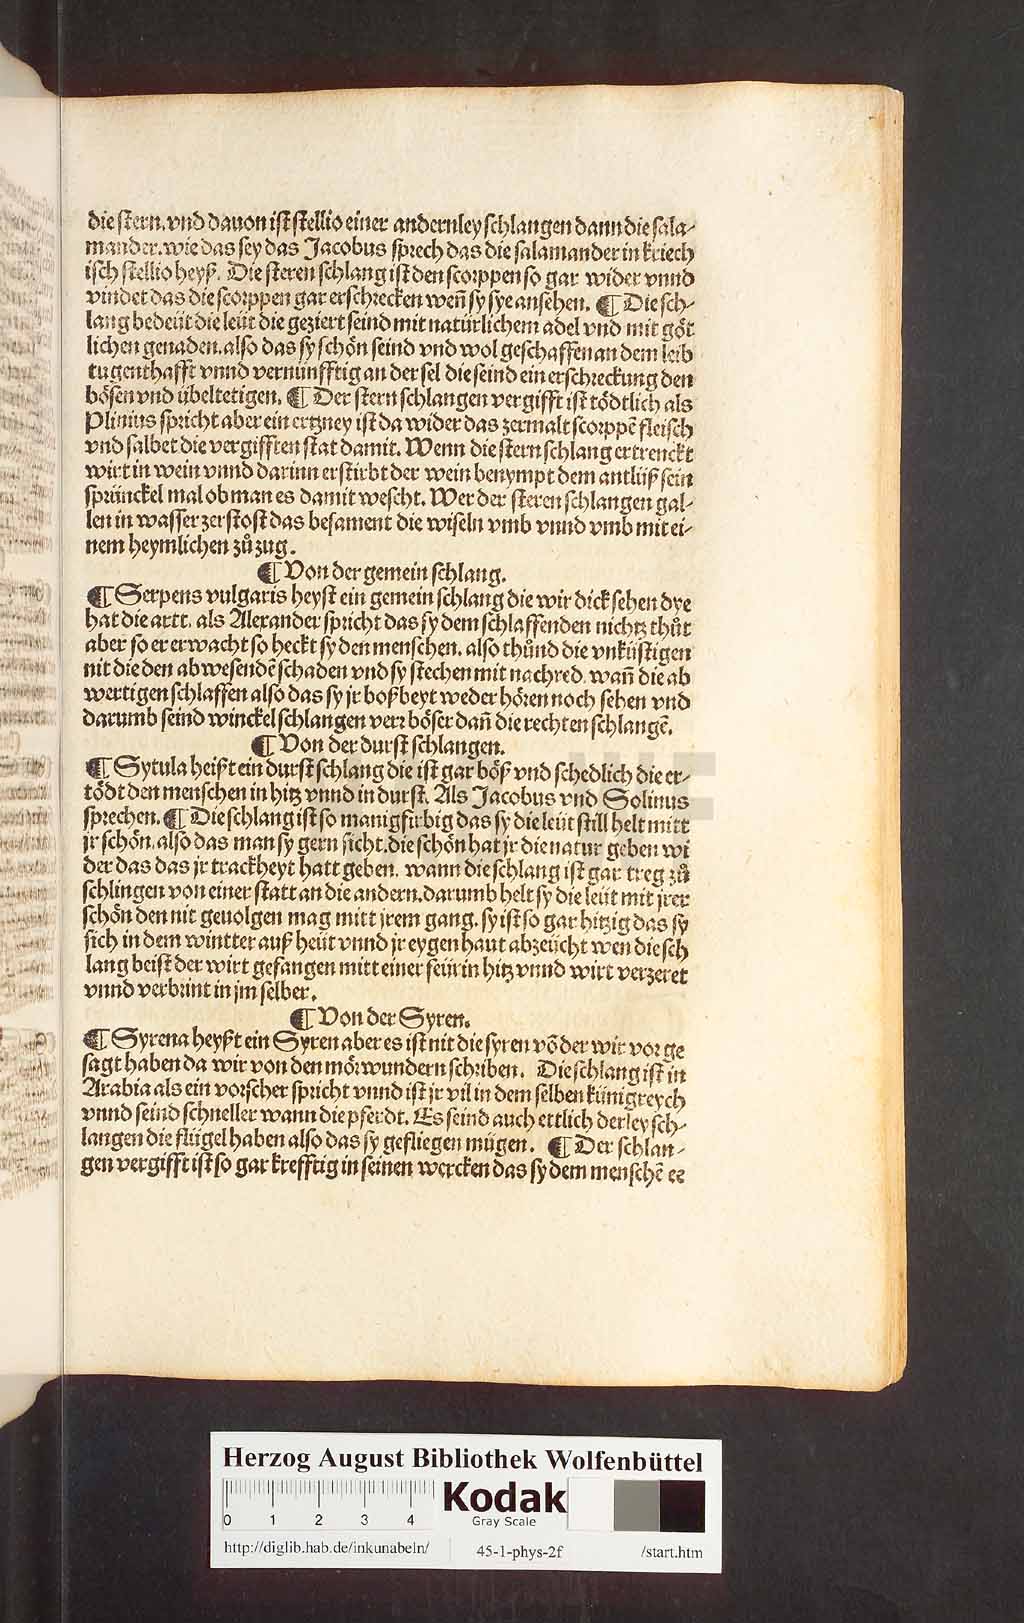 die stern. vnd dauon ist stellio einer andernley schlangen dann die sala-
mander. wie das sey das Jacobus sprech das die salamander in kriech
isch stellio heyß. Die steren schlang ist den scorppen so gar wider vnnd
vindet das die scorppen gar erschrecken weñ sy sye ansehen. ¶ Die sch-
lang bedeüt die leüt die geziert seind mit natürlichem adel vnd mit göt
lichen genaden. also das sy schön seind vnd wol geschaffen an dem leib
tugenthafft vnnd vernünfftig an der sel die seind ein erschreckung den
bösen vnd übeltetigen. ¶ Der stern schlangen vergifft ist tödtlich als
Plinius spricht aber ein ertzney ist da wider das zermalt scorppē fleisch
vnd salbet die vergifften stat damit. Wenn die stern schlang ertrenckt
wirt in wein vnnd darinn erstirbt der wein benympt dem antlüß sein
sprünckel mal ob man es damit wescht. Wer der steren schlangen gal-
len in wasser zerstost das besament die wiseln vmb vnnd vmb mit ei-
nem heymlichen zůzug.
¶ Von der gemein schlang.
¶ Serpens vulgaris heyst ein gemein schlang die wir dick sehen dye
hat die artt. als Alexander spricht das sy dem schlaffenden nichtz thůt
aber so er erwacht so heckt sy den menschen. also thůnd die vnküstigen
nit die den abwesendē schaden vnd sy stechen mit nachred. wañ die ab
wertigen schlaffen also das sy jr boßheyt weder hören noch sehen vnd
darumb seind winckel schlangen verr böser dañ die rechten schlangē.
¶ Von der durst schlangen.
¶ Sytula heißt ein durst schlang die ist gar böß vnd schedlich die er-
tödt den menschen in hitz vnnd in durst. Als Jacobus vnd Solinus
sprechen. ¶ Die schlang ist so manigfirbig das sy die leüt still helt mitt
jr schön. also das man sy gern sicht. die schön hat jr die natur geben wi
der das das jr trackheyt hatt geben. wann die schlang ist gar treg zů
schlingen von einer statt an die andern. darumb helt sy die leüt mit jrer
schön den nit geuolgen mag mitt jrem gang. sy ist so gar hitzig das sy
sich in dem wintter auß heüt vnnd jr eygen haut abzeücht wen die sch
lang beist der wirt gefangen mitt einer feür in hitz vnnd wirt verzeret
vnnd verbrint in jm selber.
¶ Von der Syren.
¶ Syrena heyßt ein Syren aber es ist nit die syren vō der wir vor ge
sagt haben da wir von den mörwundern schriben. Die schlang ist in
Arabia als ein vorscher spricht vnnd ist jr vil in dem selben künigreych
vnnd seind schneller wann die pferdt. Es seind auch ettlich derley sch-
langen die flügel haben also das sy gefliegen mügen. ¶ Der schlan-
gen vergifft ist so gar krefftig in seinen wercken das sy dem menschē ee
Herzog August Bibliothek Wolfenbüttel
0 1 2 3 4
Kodak
Gray Scale
http://diglib.hab.de/inkunabeln/ 45-1-phys-2f /start.htm